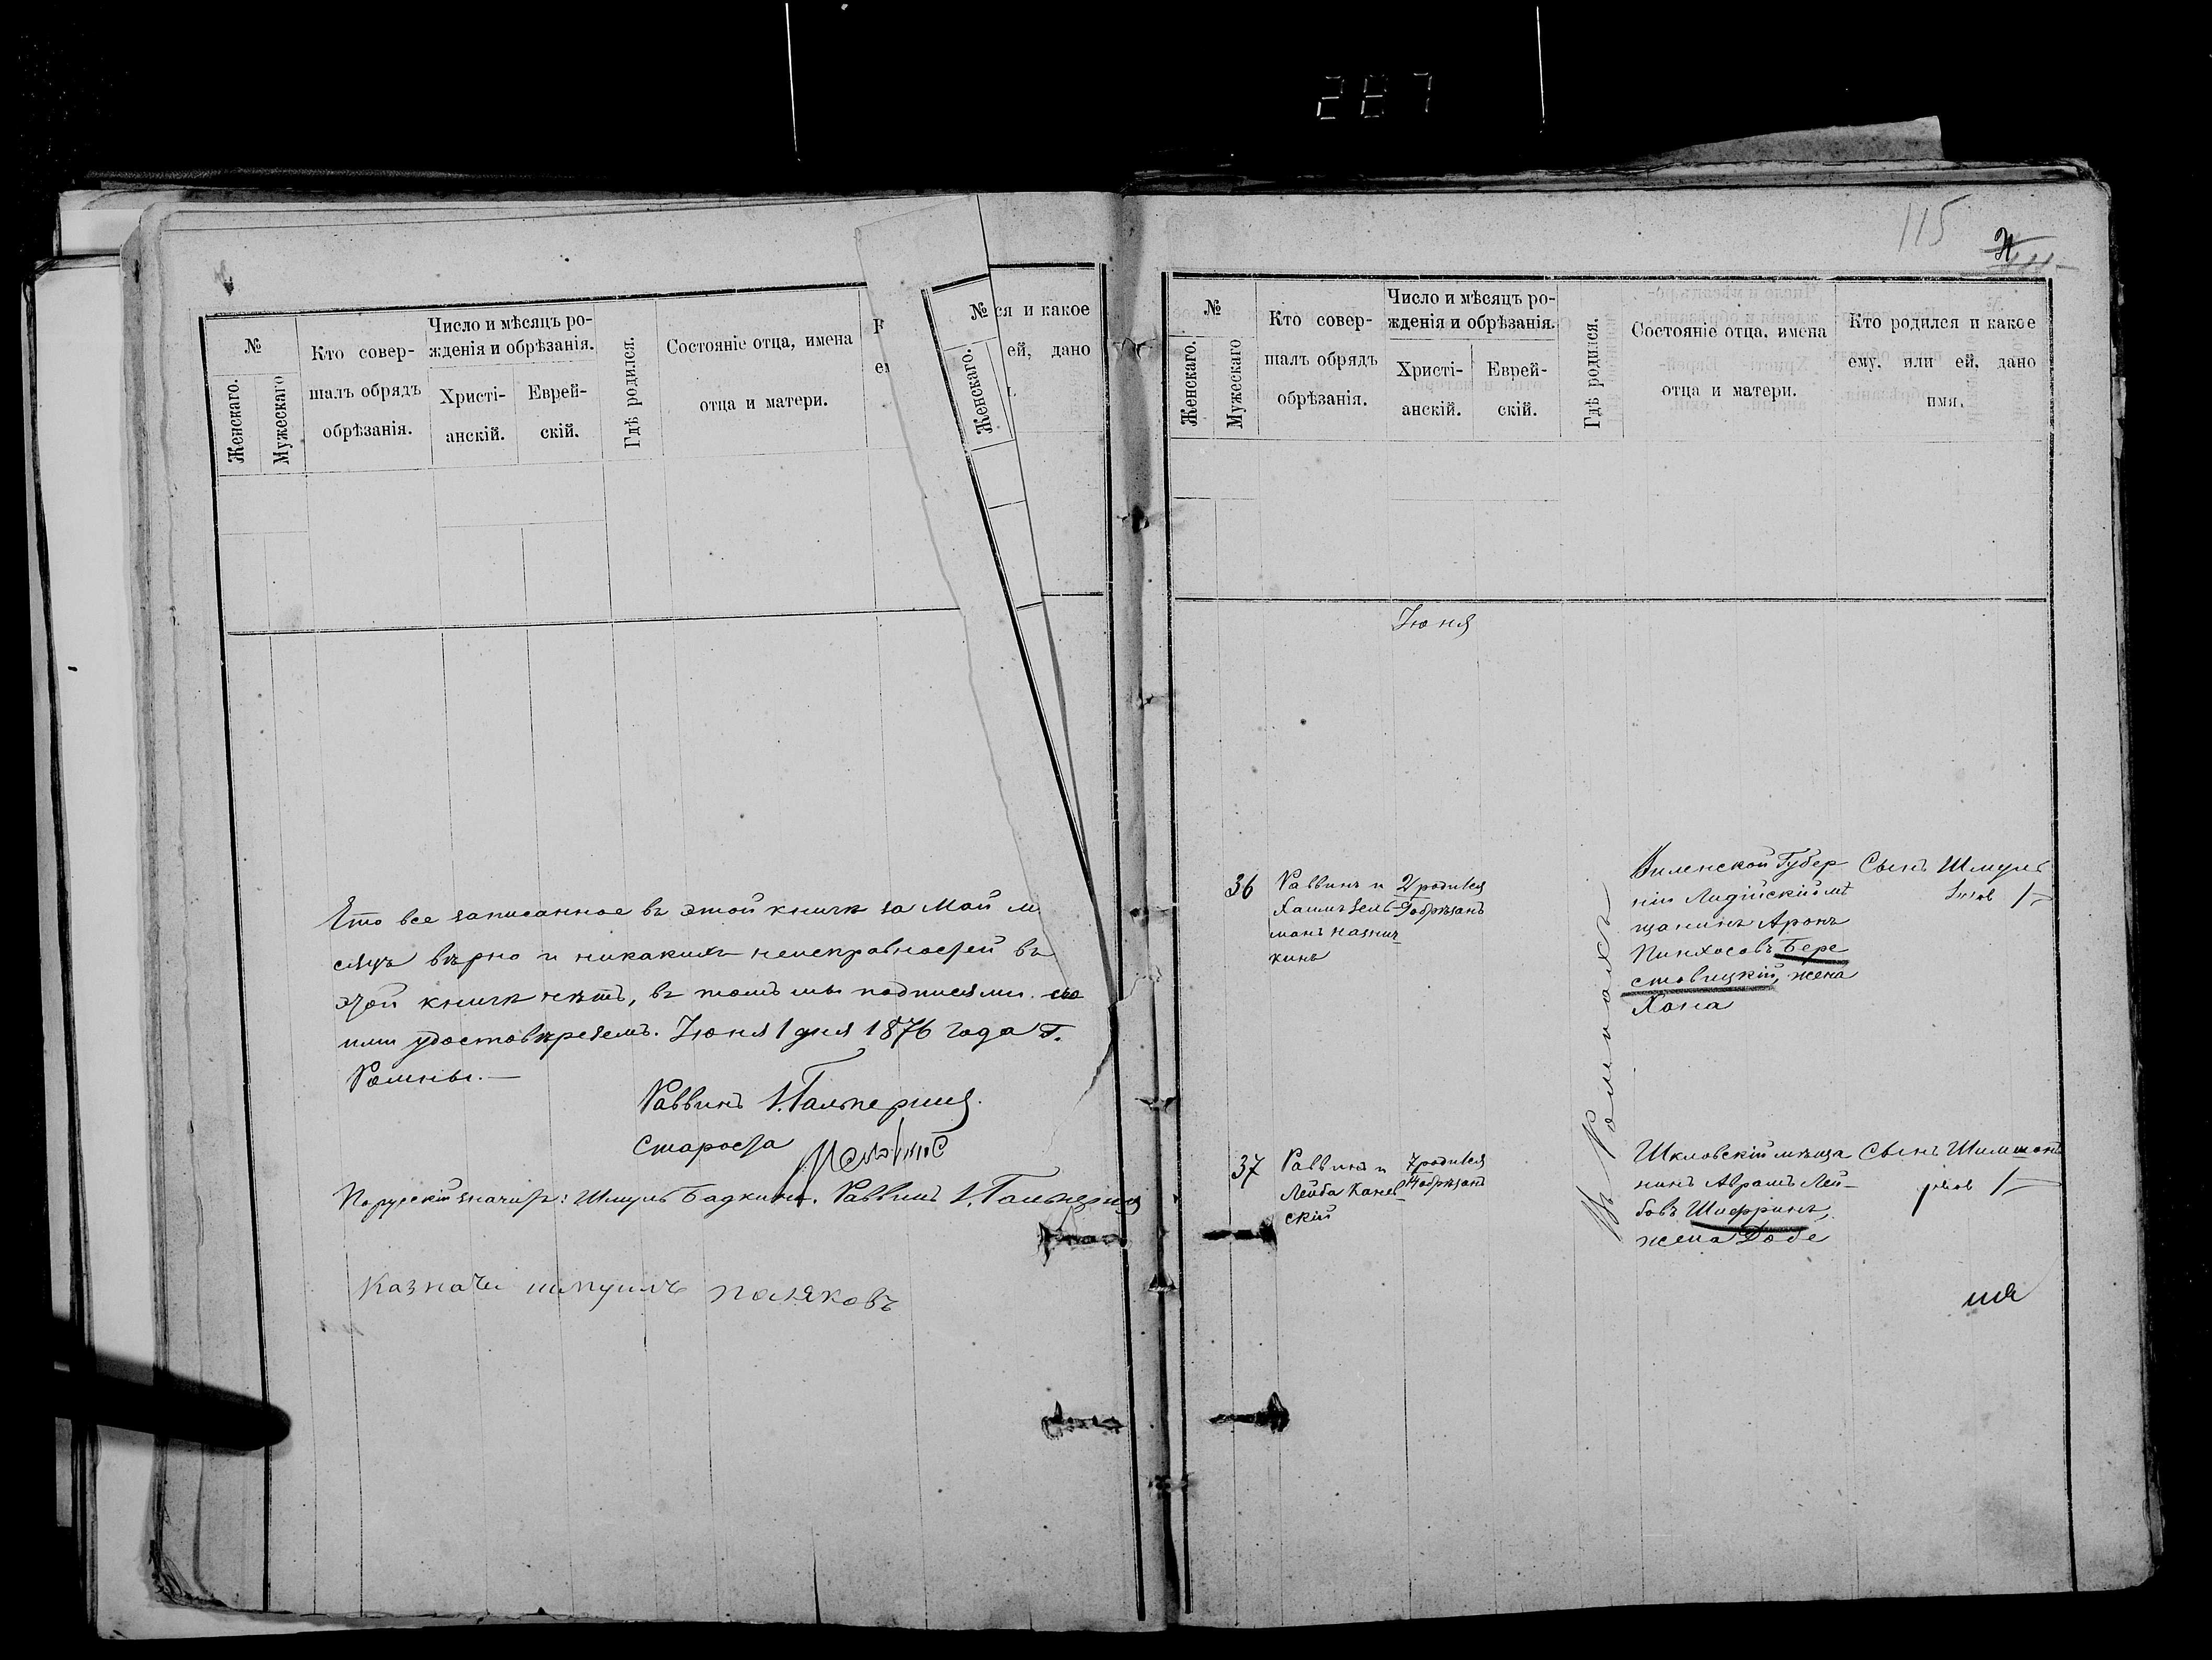 287
№
Женскаго.
Мужескаго
Кто совер-
шалъ обрядъ
обрѣзанія.
Число и мѣсяцъ ро-
жденія и обрѣзанія.
Христі-
анскій.
Еврей-
скій.
Гдѣ родился.
Состояніе отца, имена
отца и матери.
№
Женскаго.
ся и какое
ей, дано
Что все записанное въ этой книгѣ за Май м
сяцъ вѣрно и никакихъ неисправностей въ
этой книгѣ нѣтъ, въ томъ мы подписями
удостовѣряемъ. Іюня 1 дня 1876 года Г.
Ромны.—
Раввинъ І. Гальперинъ.
Староста
Порусскій значитъ: Шмуль Бадкинъ. Раввинъ І. Гальперинъ
Казначе шмуилъ поляковъ
115
№
Женскаго.
Мужескаго
Кто совер-
шалъ обрядъ
обрѣзанія.
Число и мѣсяцъ ро-
жденія и обрѣзанія.
Христі-
анскій.
Еврей-
скій.
Гдѣ родился.
Состояніе отца, имена
отца и матери.
Кто родился и какое
ему, или ей, дано
имя.
Іюня
36
Раввинъ и
Хаимъ Зель-
манъ
кинъ
2 родился
9 обрѣзанъ
Въ Ромнахъ
Виленской Губер
ніи Лидійскій мѣ
щанинъ Аронъ
Пинхосовъ Бере
стовицкій, жена
Хана
Сынъ Шмуль
37
Раввинъ и
Лейба Канев
скій
7 родился
14 обрѣзанъ
Шкловскій мѣща
нинъ Абрамъ Лей-
бовъ Шифринъ,
жена Добе
Сынъ Шимшонъ